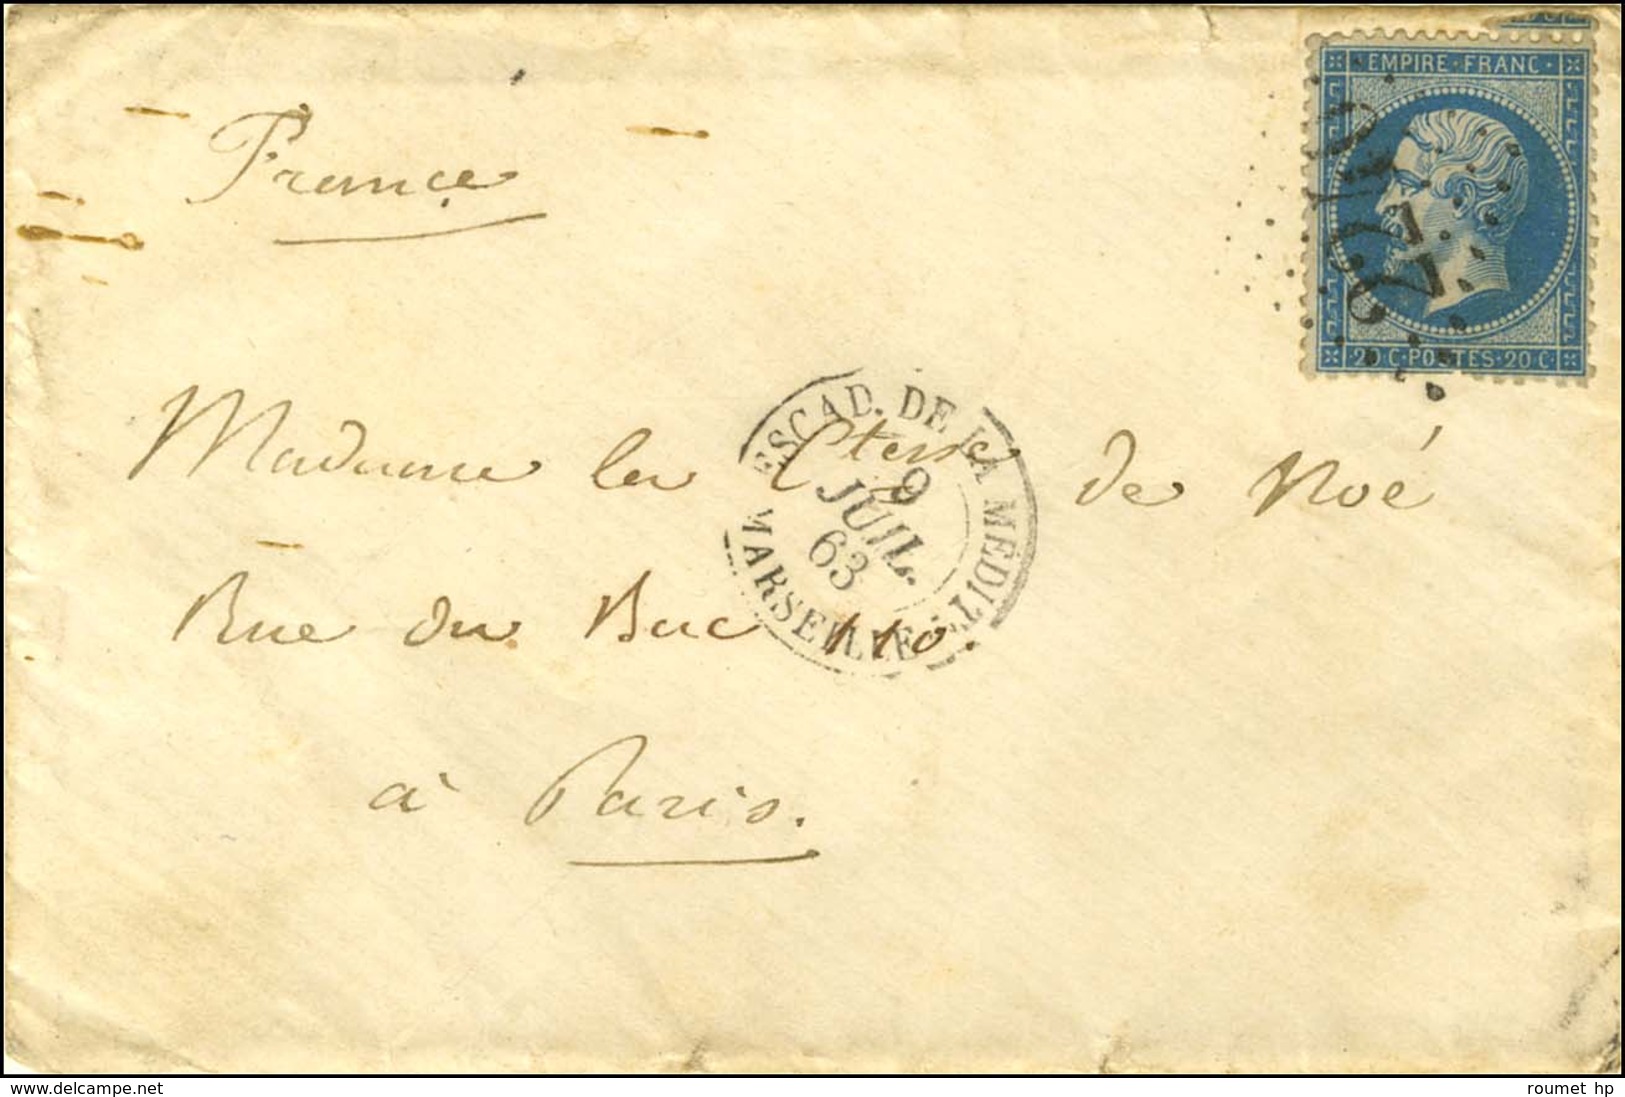 EMPIRE·FRANC·
France
20 C·POSTES·20 C·
2240
ESCAD. DE LA MEDIT.
9
JUIL.
63
MARSEILLE
Madame la Ctesse de Noé
Rue du Bac 110.
à Paris.
www.delcampe.net
roumet hp